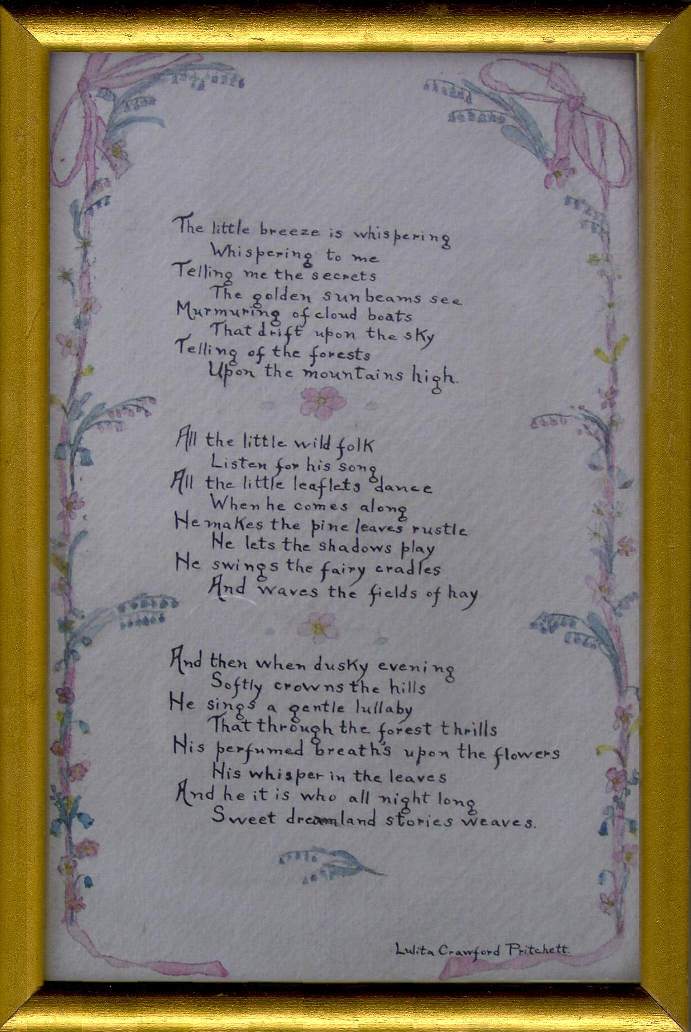 The little breeze is whispering
Whispering to me
Telling me the secrets
The golden sunbeams see
Murmuring of cloud boats
That drift upon the sky
Telling of the forests
Upon the mountains high.
All the little wild folk
Listen for his song
All the little leaflets dance
When he comes along
He makes the pine leaves rustle
He lets the shadows play
He swings the fairy cradles
And waves the fields of hay
And then when dusky evening
Softly crowns the hills
He sings a gentle lullaby
That through the forest thrills
His perfumed breath's upon the flowers
His whisper in the leaves
And he it is who all night long
Sweet dreamland stories weaves.
Lulita Crawford Pritchett